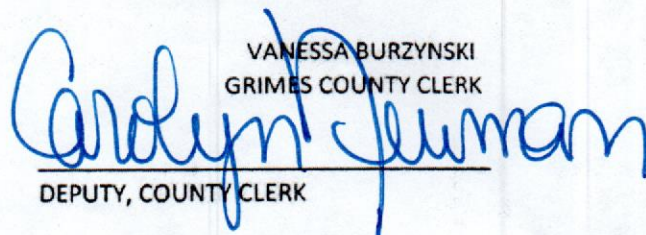 VANESSA BURZYNSKI
GRIMES COUNTY CLERK
Carolyn Newman
DEPUTY, COUNTY CLERK